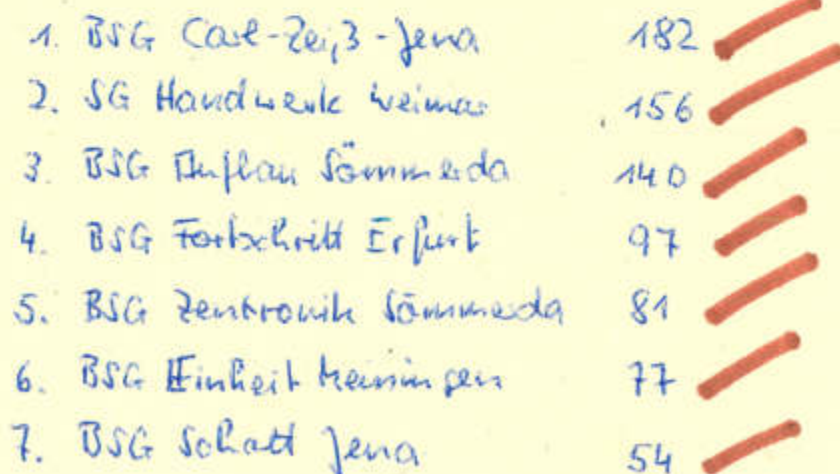 1. BSG Carl-Zeiß-Jena 182
2. SG Handwerk Weimar 156
3. BSG Aufbau Sömmerda 140
4. BSG Fortschritt Erfurt 97
5. BSG Zentronik Sömmerda 81
6. BSG Einheit Meiningen 77
7. BSG Schott Jena 54